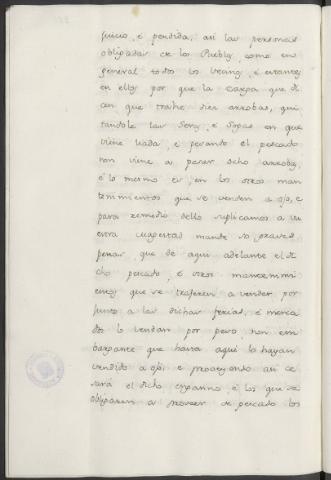 juicio, é perdida, asi las personas
obligadas de los Pueblos, como en
general todos los vecinos, é estantes
en ellos por que la carga que di
cen que trahe diez arrobas, qui
tandole las Seras, é Sogas en que
viene liada, é pesando el pescado
non viene a pesar ocho arrobas,
é lo mesmo es, en los otros man
tenimientos que se venden a ojo, é
para remedio dello suplicamos a vu
estra Magestad mande so graves
penas, que de aqui adelante el di
cho pescado, é otros mantenimi
entos que se trageren a vender por
junto a las dichas ferias, é merca
dos lo vendan por peso, non em
bargante que hasta aqui lo hayan
vendido a ojo; é proveyendo asi ce
sará el dicho engaño, é los que se
obligaren a proveer de pescado los